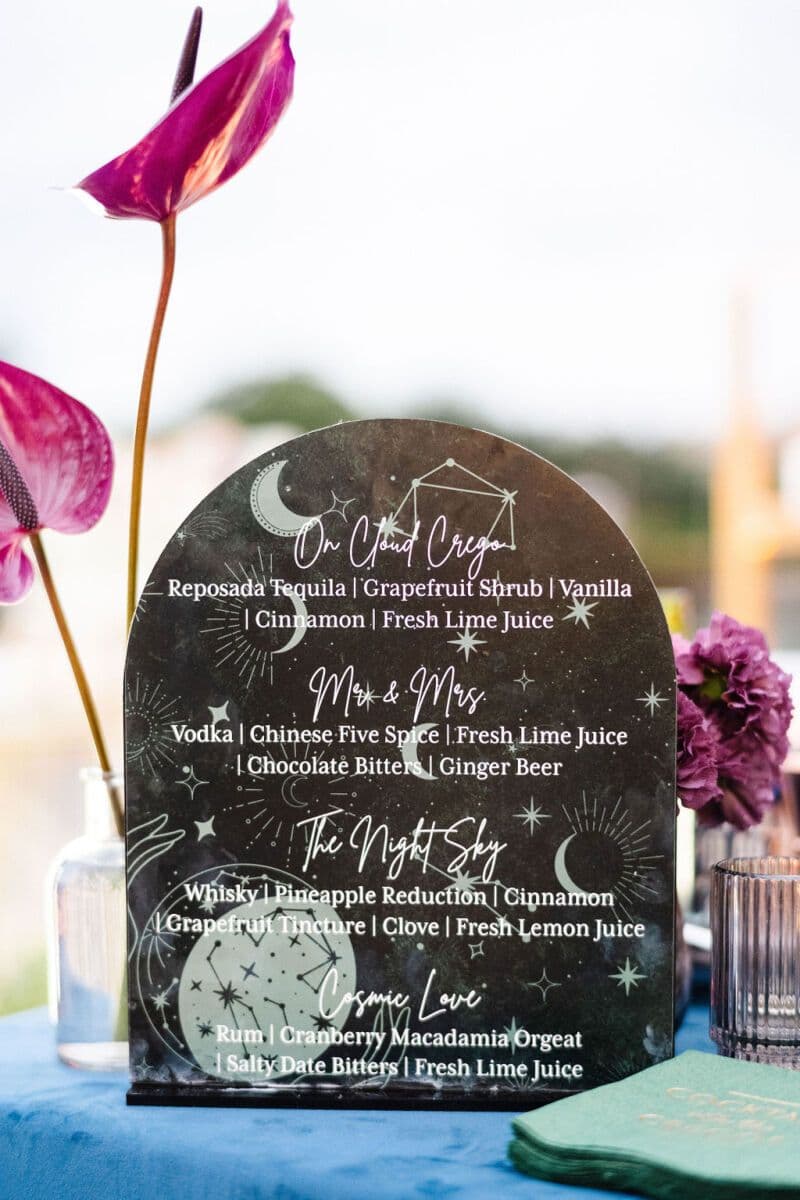 On Cloud Crego
Reposada Tequila | Grapefruit Shrub | Vanilla
| Cinnamon | Fresh Lime Juice
Mr & Mrs
Vodka | Chinese Five Spice | Fresh Lime Juice
| Chocolate Bitters | Ginger Beer
The Night Sky
Whisky | Pineapple Reduction | Cinnamon
| Grapefruit Tincture | Clove | Fresh Lemon Juice
Cosmic Love
Rum | Cranberry Macadamia Orgeat
| Salty Date Bitters | Fresh Lime Juice